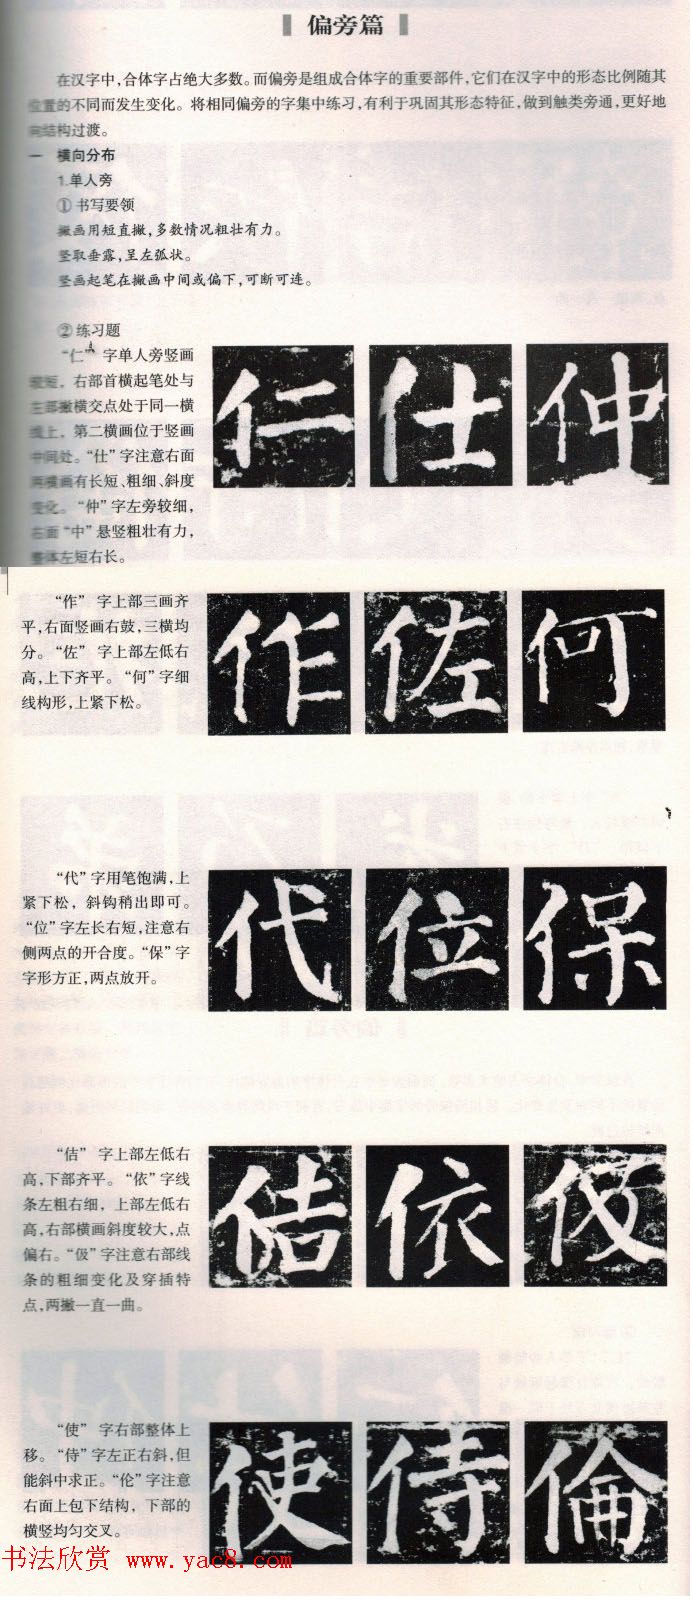 偏旁篇
在汉字中,合体字占绝大多数。而偏旁是组成合体字的重要部件,它们在汉字中的形态比例随其
位置的不同而发生变化。将相同偏旁的字集中练习,有利于巩固其形态特征,做到触类旁通,更好地
向结构过渡。
一 横向分布
1.单人旁
① 书写要领
撇画用短直撇,多数情况粗壮有力。
竖取垂露,呈左弧状。
竖画起笔在撇画中间或偏下,可断可连。
② 练习题
“仁” 字单人旁竖画
较短，右部首横起笔处与
左部撇横交点处于同一横
线上，第二横画位于竖画
中间处。“仕” 字注意右面
两横画有长短、粗细、斜度
变化。“仲” 字左旁较细，
右面 “中” 悬竖粗壮有力，
整体左短右长。
仁 仕 仲
“作” 字上部三画齐
平,右面竖画右鼓,三横均
分。“佐” 字上部左低右
高,上下齐平。“何”字细
线构形,上紧下松。
作 佐 何
“代”字用笔饱满,上
紧下松，斜钩稍出即可。
“位”字左长右短,注意右
侧两点的开合度。“保”字
字形方正,两点放开。
代 位 保
“佶” 字上部左低右
高,下部齐平。“依”字线
条左粗右细，上部左低右
高,右部横画斜度较大,点
偏右。“伋”字注意右部线
条的粗细变化及穿插特
点,两撇一直一曲。
佶 依 伋
“使” 字右部整体上
移。“侍”字左正右斜,但
能斜中求正。“伦”字注意
右面上包下结构，下部的
横竖均匀交叉。
使 侍 倫
书法欣赏 www.yac8.com